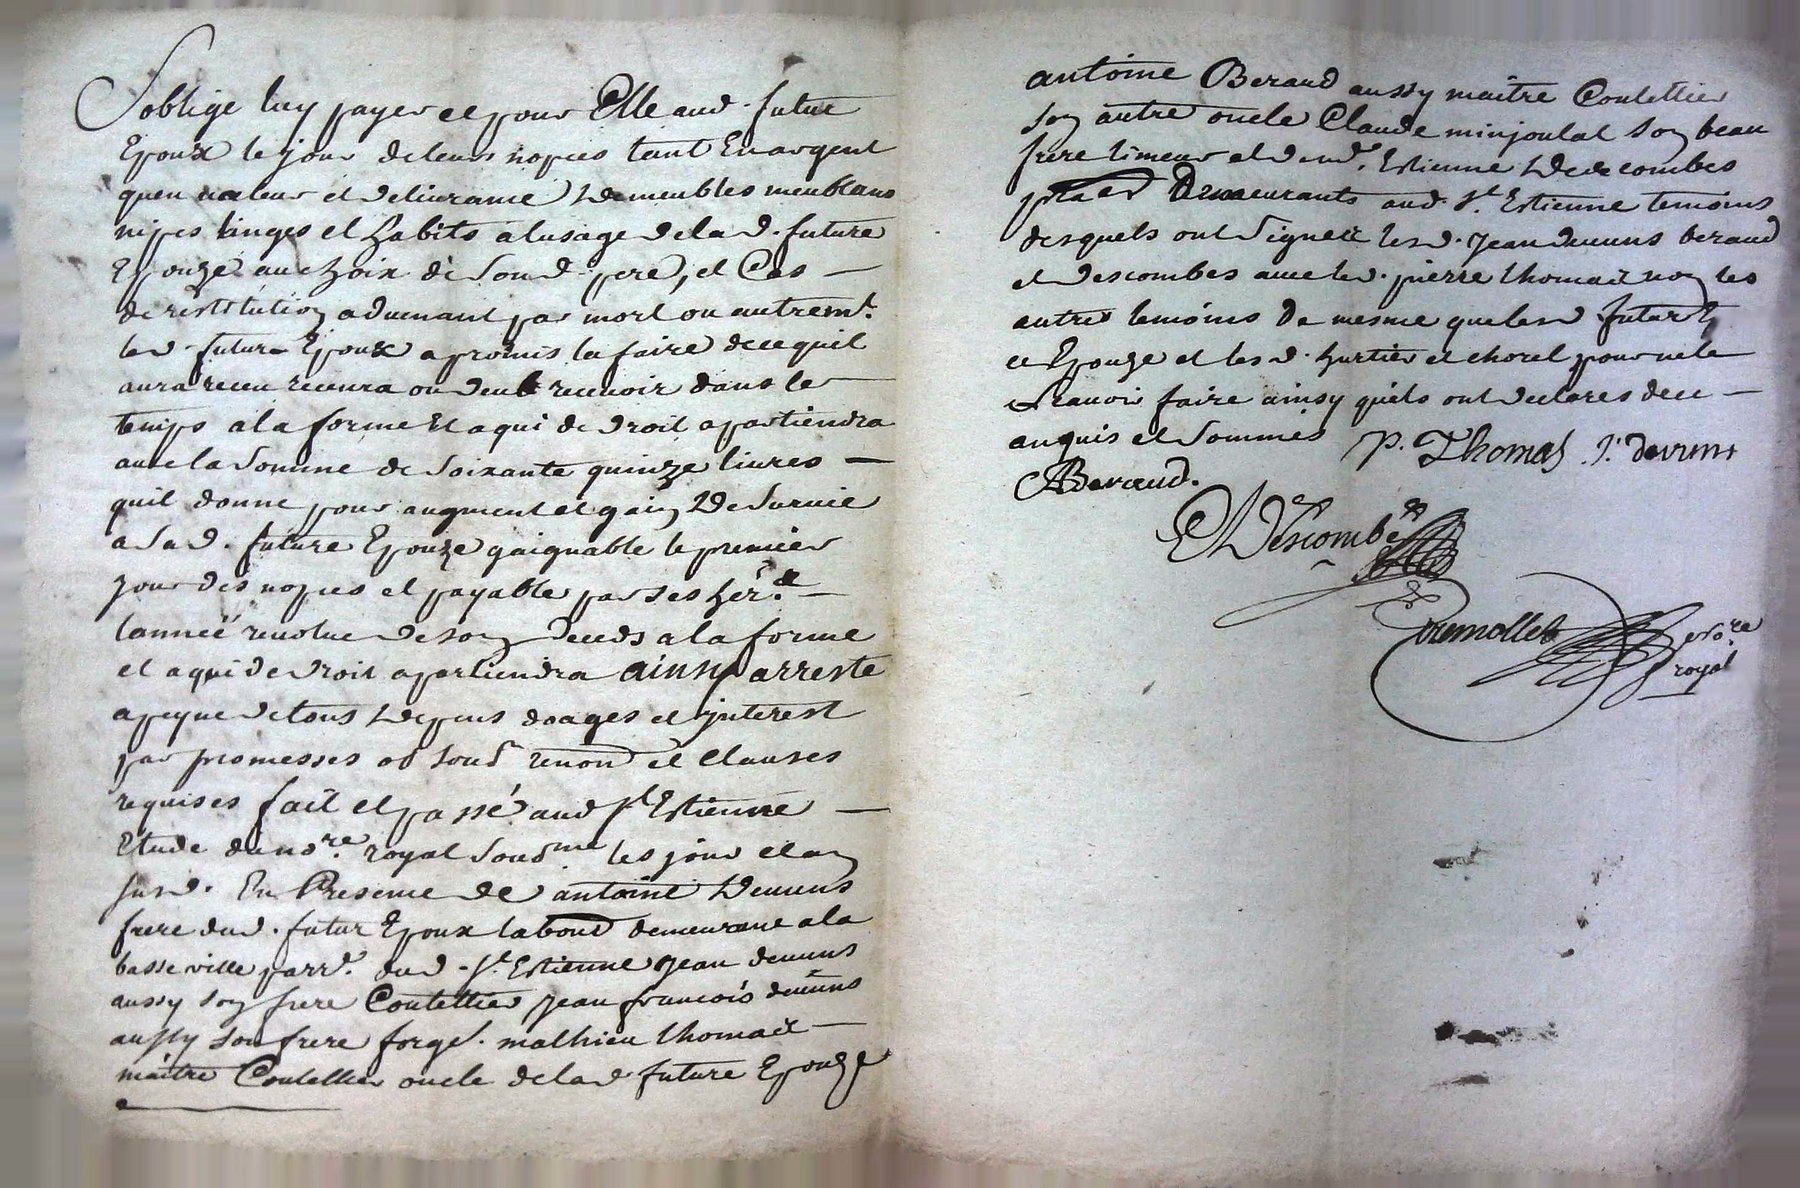 Soblige luy payer et pour Elle aud. futur
Epoux le jour de leurs nopces tant En argent
quen valeur et delivrance de meubles meublans
nipes linges et habits a lusage de lad. future
Epouze au choix de sond. pere, et Cas
de restitution advenant par mort ou autremt.
led. futur Epoux a promis la faire de ce quil
aura receu recevra ou deub recevoir dans le
temps a la forme Et a qui de droit apartiendra
avec la somme de soixante quinze livres
quil donne pour augment et gain de survie
a sad. future Epouze gaignable le premier
jour des nopces et payable par ses her.
lanneé revolue de son deceds a la forme
et a qui de droit apartiendra ainsy arresté
a peyne de tous depens doages et interest
par promesses ob soud. renon et Clauses
requises fait et passé aud St Estienne
Etude du nore. royal soud. les jour et an
susd. En Presence de antoine devuns
frere dud. futur Epoux demeurant a la
basse ville parr. dud. St. Estienne Jean devuns
aussy son frere Coutellier Jean francois devuns
aussy son frere forge. mathieu thomas
maitre Coutellier oncle de lad future Epouze
antoine Beraud aussy maitre Coutellier
son autre oncle Claude minjoulat son beau
frere limeur et de md. Estienne descombes
demeurants aud. St. Estienne temoins
desquels ont signeé lesd. Jean devuns beraud
et descombes avec led. pierre thomas non les
autres temoins de mesme que lesd. futurs
Epouze et les d. hurtier et chorel pour ne le
scavoir faire ainsy quils ont declarés de ce
anquis et sommés P. Thomas J. devuns
ABeraud.
E Descombes
Tremollet nore
royal